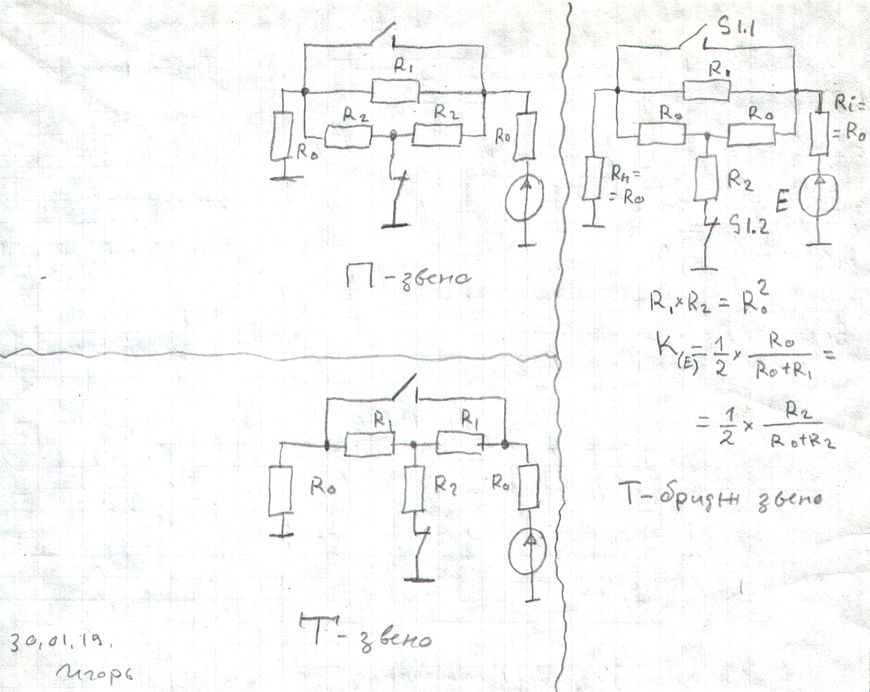 R₁
R₂ R₂
R₀ R₀
П-звено
R₁ R₁
R₀ R₂ R₀
Т-звено
30.01.19.
Игорь
S1.1
R₁
R₀ R₀
Ri=
=R₀
Rн=
=R₀
R₂
E
S1.2
R₁×R₂ = R₀²
K(E) = 1/2 × R₀/(R₀+R₁) =
= 1/2 × R₂/(R₀+R₂)
Т-бридж звено